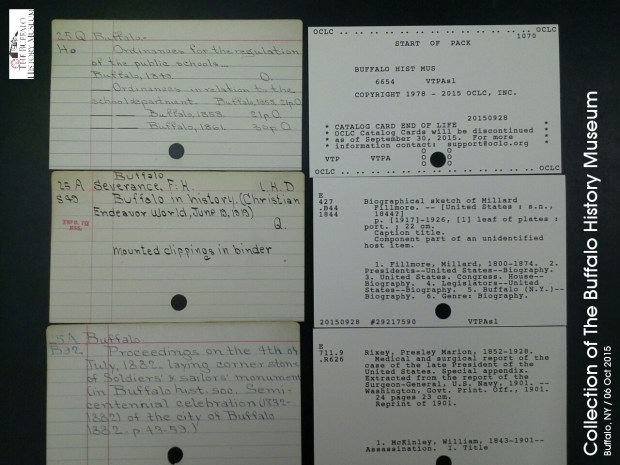 THE BUFFALO
HISTORY MUSEUM
25 Q Buffalo.
Ho Ordinances for the regulation
of the public schools.
Buffalo, 1840 O.
—Ordinances in relation to the
school department. Buffalo 1858 21p O.
— Buffalo, 1858. 21p. O.
— Buffalo, 1861. 30p. O.
Buffalo
25 A Severance, F. H. L. H. D
S49 Buffalo in history. (Christian
Endeavor World, June 12, 1913)
Q.
mounted clippings in binder
5A Buffalo
B92 Proceedings on the 4th of
July, 1882. laying cornerston
of Soldiers & sailors' monument
(in Buffalo hist. soc. Semi-
centennial celebration (1832-
1882) of the city of Buffalo
1882. p. 43-53)
OCLC .. .. .. .. .. .. .. .. .. .. .. .. OCLC
1070
START OF PACK
BUFFALO HIST MUS
6654 VTPAsl
COPYRIGHT 1978 - 2015 OCLC, INC.
20150928
* CATALOG CARD END OF LIFE *
* OCLC Catalog Cards will be discontinued *
* as of September 30, 2015. For more *
* information contact: support@oclc.org *
VTP VTPA
OCLC .. .. .. .. .. .. .. .. .. .. .. .. OCLC
E
427 Biographical sketch of Millard
.B44 Fillmore. -- [United States : s.n.,
1844 1844?]
p. [1917]-1926, [1] leaf of plates :
port. ; 22 cm.
Caption title.
Component part of an unidentified
host item.
1. Fillmore, Millard, 1800-1874. 2.
Presidents--United States--Biography.
3. United States. Congress. House--
Biography. 4. Legislators--United
States--Biography. 5. Buffalo (N.Y.)--
Biography. 6. Genre: Biography.
20150928 #29217590 VTPAsl
E
711.9 Rixey, Presley Marion, 1852-1928.
.R626 Medical and surgical report of the
case of the late President of the
United States. Special appendix.
Extracted from the report of the
Surgeon-General, U.S. Navy, 1901. --
Washington, Govt. Print. Off., 1901.
24 pages 23 cm.
Reprint of 1901.
1. McKinley, William, 1843-1901--
Assassination. I. Title
Collection of The Buffalo History Museum
Buffalo, NY / 06 Oct 2015